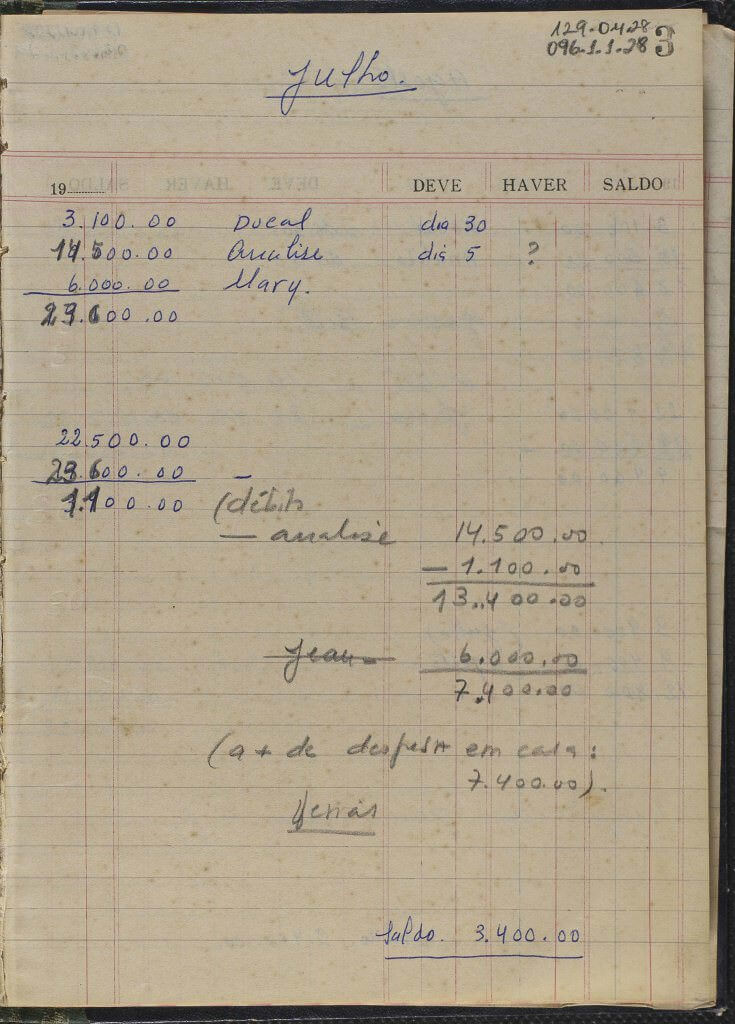 129.04.28
096.1.1.28 3
Julho.
19 DEVE HAVER SALDO
3.100.00 Ducal dia 30
14.500.00 Analise dia 5 ?
6.000.00 Mary.
23.600.00
22.500.00
23.600.00 —
1.100.00 (débito
— analise 14.500.00
— 1.100.00
13.400.00
Jean 6.000.00
7.400.00
(a + de despesa em casa:
7.400.00).
Saldo. 3.400.00